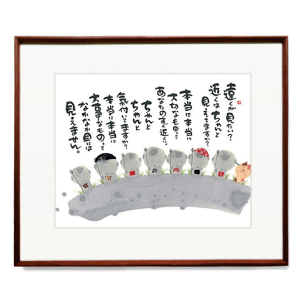 遠くが見たい？
近くはちゃんと
見えてますか？
本当に本当に
大切なものって
あなたのすぐ近くに。
ちゃんと
ちゃんと
気付いてますか？
本当に本当に
大事なものって
なかなか目には
見えません。